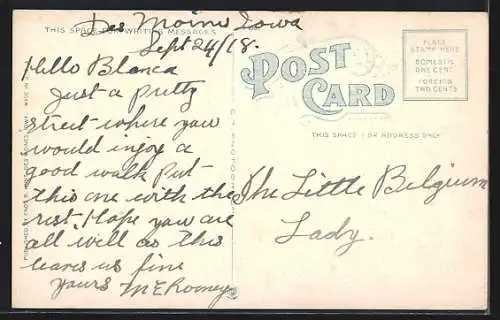 Des Moines Iowa
THIS SPACE FOR WRITING MESSAGES
Sept 24/18.
Hello Blanca
Just a pretty
street where you
would injoy a
good walk put
this one with the
rest. Hope you are
all well as this
leaves us fine
yours M E Romey
POST
CARD
THIS SPACE FOR ADDRESS ONLY
PLACE
STAMP HERE
DOMESTIC
ONE CENT
FOREIGN
TWO CENTS
The Little Belgium
Lady.